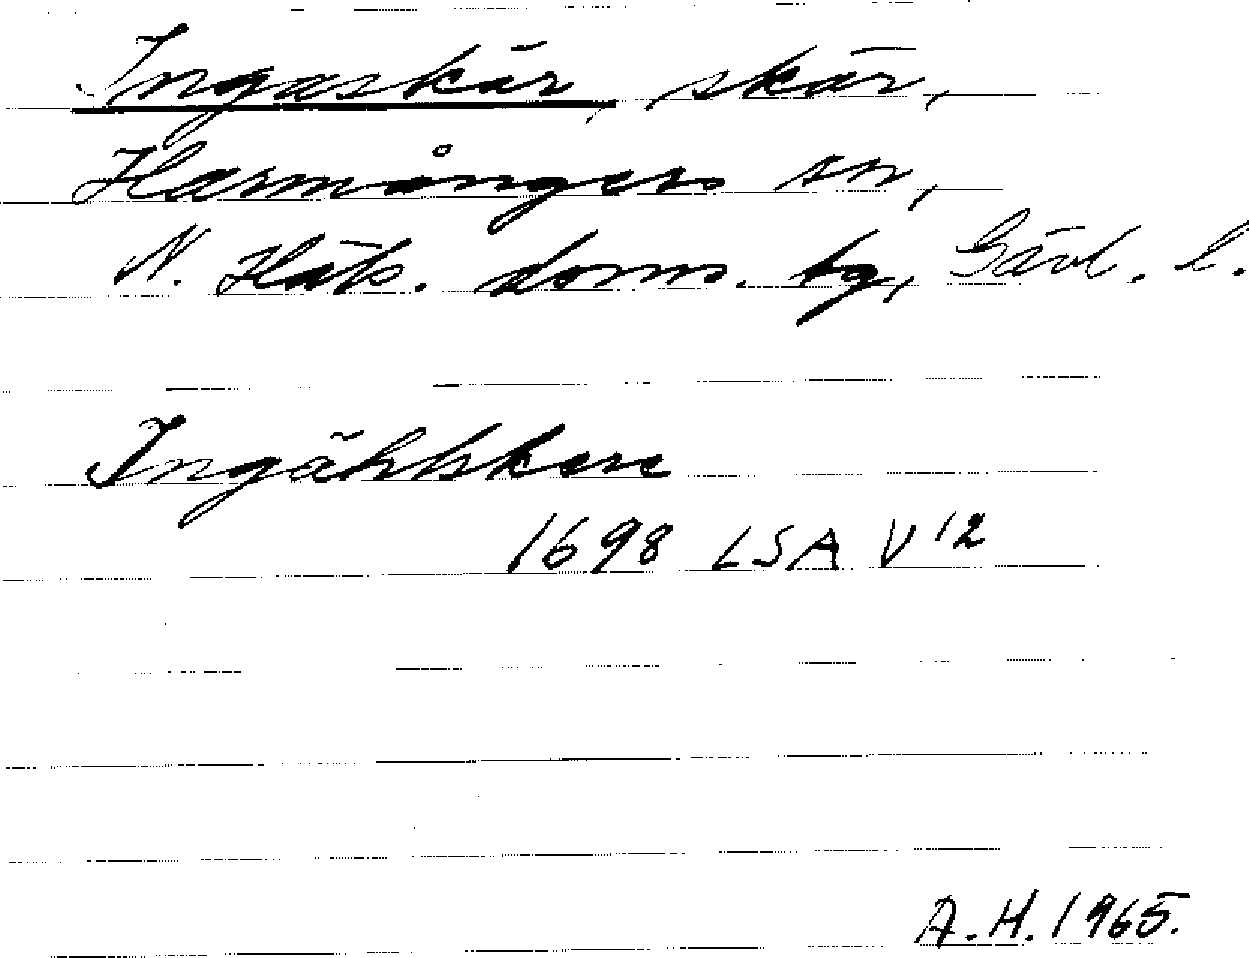 Ingaskär, skär,
Harmångers sn,
N. Häls. doms. tg, Gävl. l.
Ingähkkere
1698 LSA V 12
A. H. 1965.